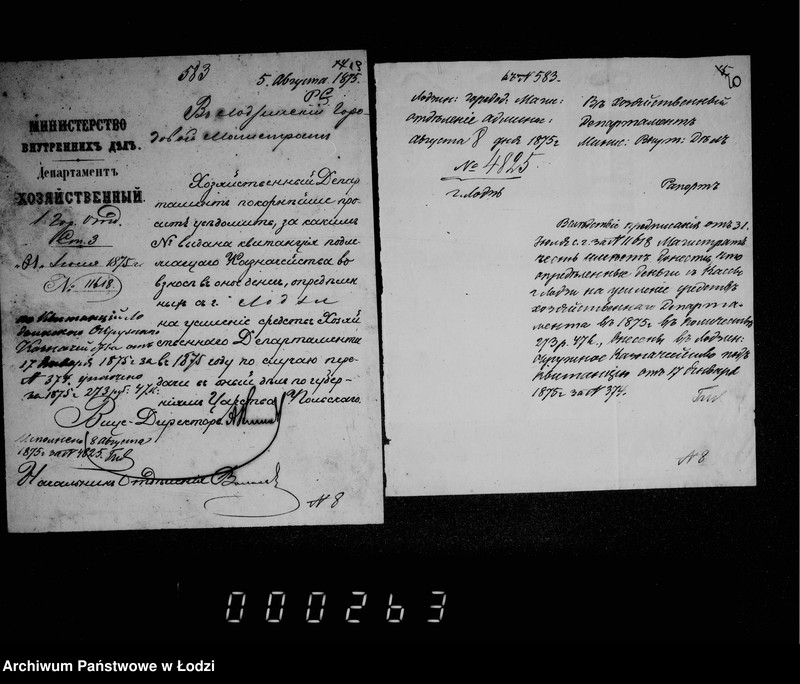 583
5. Августа 1875.
Въ Лодзинскій Горо-
довой Магистратъ
МИНИСТЕРСТВО
ВНУТРЕННИХЪ ДѢЛЪ.
Департаментъ
ХОЗЯЙСТВЕННЫЙ.
Ст. 3
"31" Іюля 1875 г.
№ 11618.
Хозяйственный Депар-
таментъ покорнѣйше про-
ситъ увѣдомить, за какимъ
№ выдана квитанція подле-
жащаго Казначейства во
взносѣ въ оное денегъ, опредѣлен-
ныхъ съ г. Лодзи
на усиленіе средствъ Хозяй
ственнаго Департамента
въ 1875 году по случаю пере-
дачи въ оный дѣлъ по губер-
ніямъ Царства Польскаго.
по квитанціи Ло
дзинского Окружнаго
Казначейства отъ
17 Января 1875 г. за
№ 374, уплочено
за 1875 г. 273 руб. 47 к.
Вице-Директоръ
Исполнено 8 Августа
1875 г. за № 4825.
Начальникъ Отдѣленія
№ 8
къ № 583.
Лодзин: городов. Маги:
отдѣленіе админ:
Августа 8 дня 1875 г.
№ 4825.
г. Лодзь
Въ Хозяйственный
Департаментъ
Минис: Внутр: Дѣлъ
Рапортъ
Вслѣдствіе предписанія отъ 31.
Іюля с. г. за № 11618 Магистратъ
честь имѣетъ донести, что
опредѣленные деньги съ Кассы
г. Лодзи на усиленіе средствъ
хозяйственнаго Департа-
мента въ 1875 г. въ количествѣ
273 р. 47 к., внесены въ Лодзин:
окружное Казначейство подъ
квитанцію отъ 17 Января
1875 г. за № 374.
№ 8
000263
Archiwum Państwowe w Łodzi